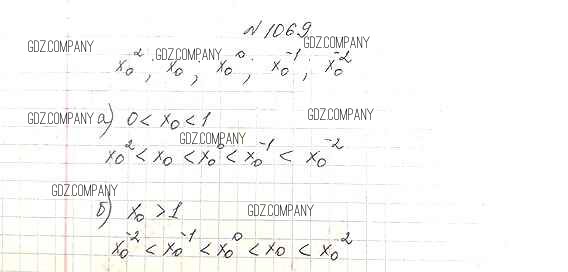 N 1069
GDZ.COMPANY GDZ.COMPANY GDZ.COMPANY
x₀²; x₀; x₀⁰; x₀⁻¹; x₀⁻²
GDZ.COMPANY а) 0 < x₀ < 1 GDZ.COMPANY
GDZ.COMPANY
x₀² < x₀ < x₀⁰ < x₀⁻¹ < x₀⁻²
GDZ.COMPANY
б) x₀ > 1 GDZ.COMPANY
x₀⁻² < x₀⁻¹ < x₀⁰ < x₀ < x₀²